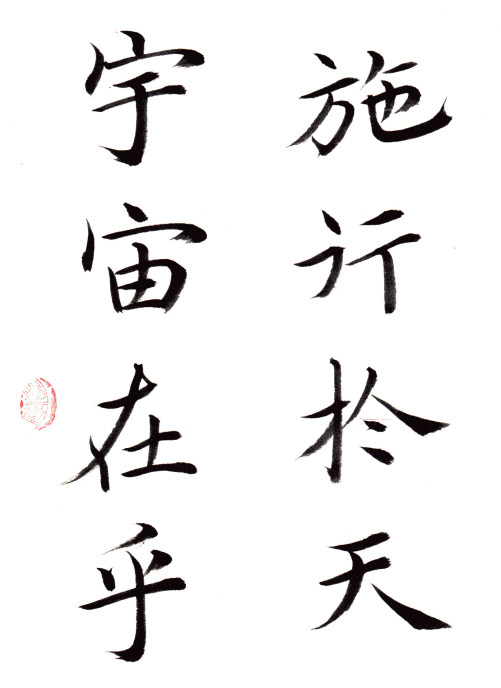 施行於天
宇宙在乎